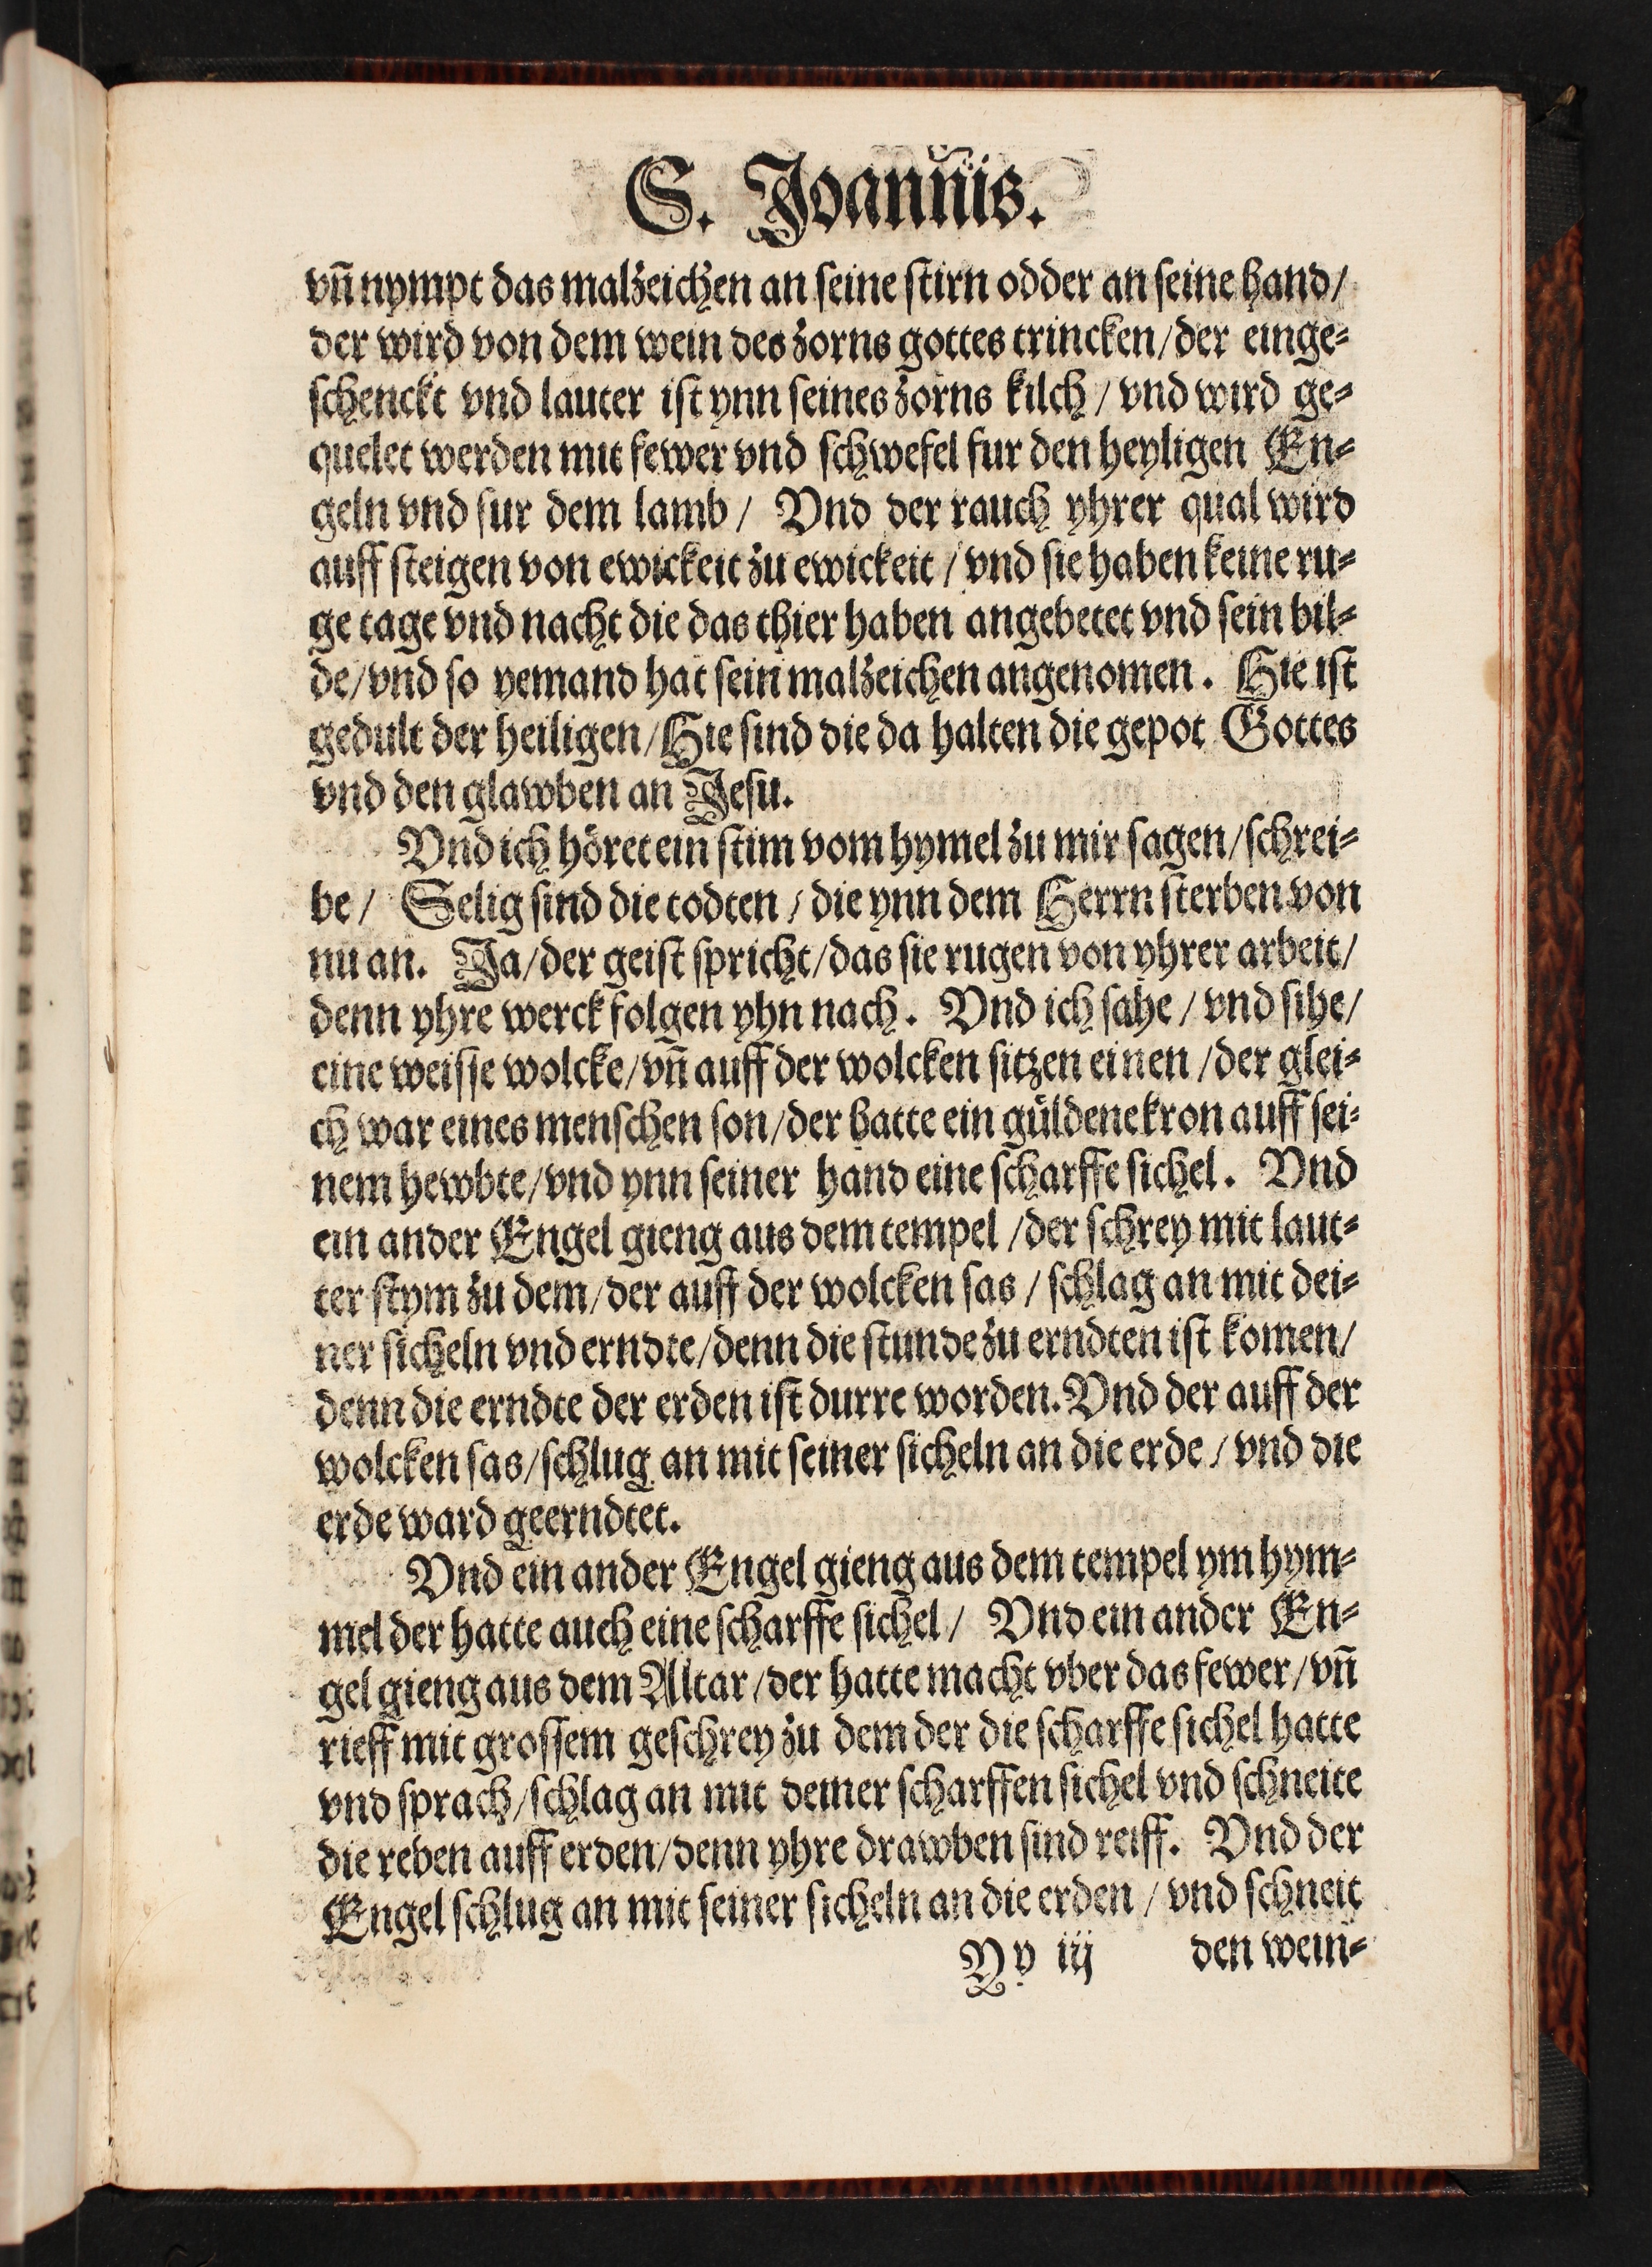 S. Joannis.
vñ nympt das malzeichen an seine stirn odder an seine hand/
der wird von dem wein des zorns gottes trincken/der einge⸗
schenckt vnd lauter ist ynn seines zorns kilch / vnd wird ge⸗
quelet werden mit fewer vnd schwefel fur den heyligen En⸗
geln vnd fur dem lamb / Vnd der rauch yhrer qual wird
auff steigen von ewickeit zu ewickeit / vnd sie haben keine ru⸗
ge tage vnd nacht die das thier haben angebetet vnd sein bil⸗
de/vnd so yemand hat sein malzeichen angenomen. Hie ist
gedult der heiligen/Hie sind die da halten die gepot Gottes
vnd den glawben an Jesu.
Vnd ich höret ein stim vom hymel zu mir sagen/schrei⸗
be / Selig sind die todten / die ynn dem Herrn sterben von
nu an. Ja/der geist spricht/das sie rugen von yhrer arbeit/
denn yhre werck folgen yhn nach. Vnd ich sahe / vnd sihe/
eine weisse wolcke/vñ auff der wolcken sitzen einen /der glei⸗
ch war eines menschen son/der hatte ein güldene kron auff sei⸗
nem hewbte/vnd ynn seiner hand eine scharffe sichel. Vnd
ein ander Engel gieng aus dem tempel /der schrey mit laut⸗
ter stym zu dem/der auff der wolcken sas / schlag an mit dei⸗
ner sicheln vnd erndte/denn die stunde zu erndten ist komen/
denn die erndte der erden ist durre worden. Vnd der auff der
wolcken sas/schlug an mit seiner sicheln an die erde / vnd die
erde ward geerndtet.
Vnd ein ander Engel gieng aus dem tempel ym hym⸗
mel der hatte auch eine scharffe sichel / Vnd ein ander En⸗
gel gieng aus dem Altar /der hatte macht vber das fewer/vñ
rieff mit grossem geschrey zu dem der die scharffe sichel hatte
vnd sprach/schlag an mit deiner scharffen sichel vnd schneite
die reben auff erden/denn yhre drawben sind reiff. Vnd der
Engel schlug an mit seiner sicheln an die erden / vnd schneit
Yy iij den wein⸗